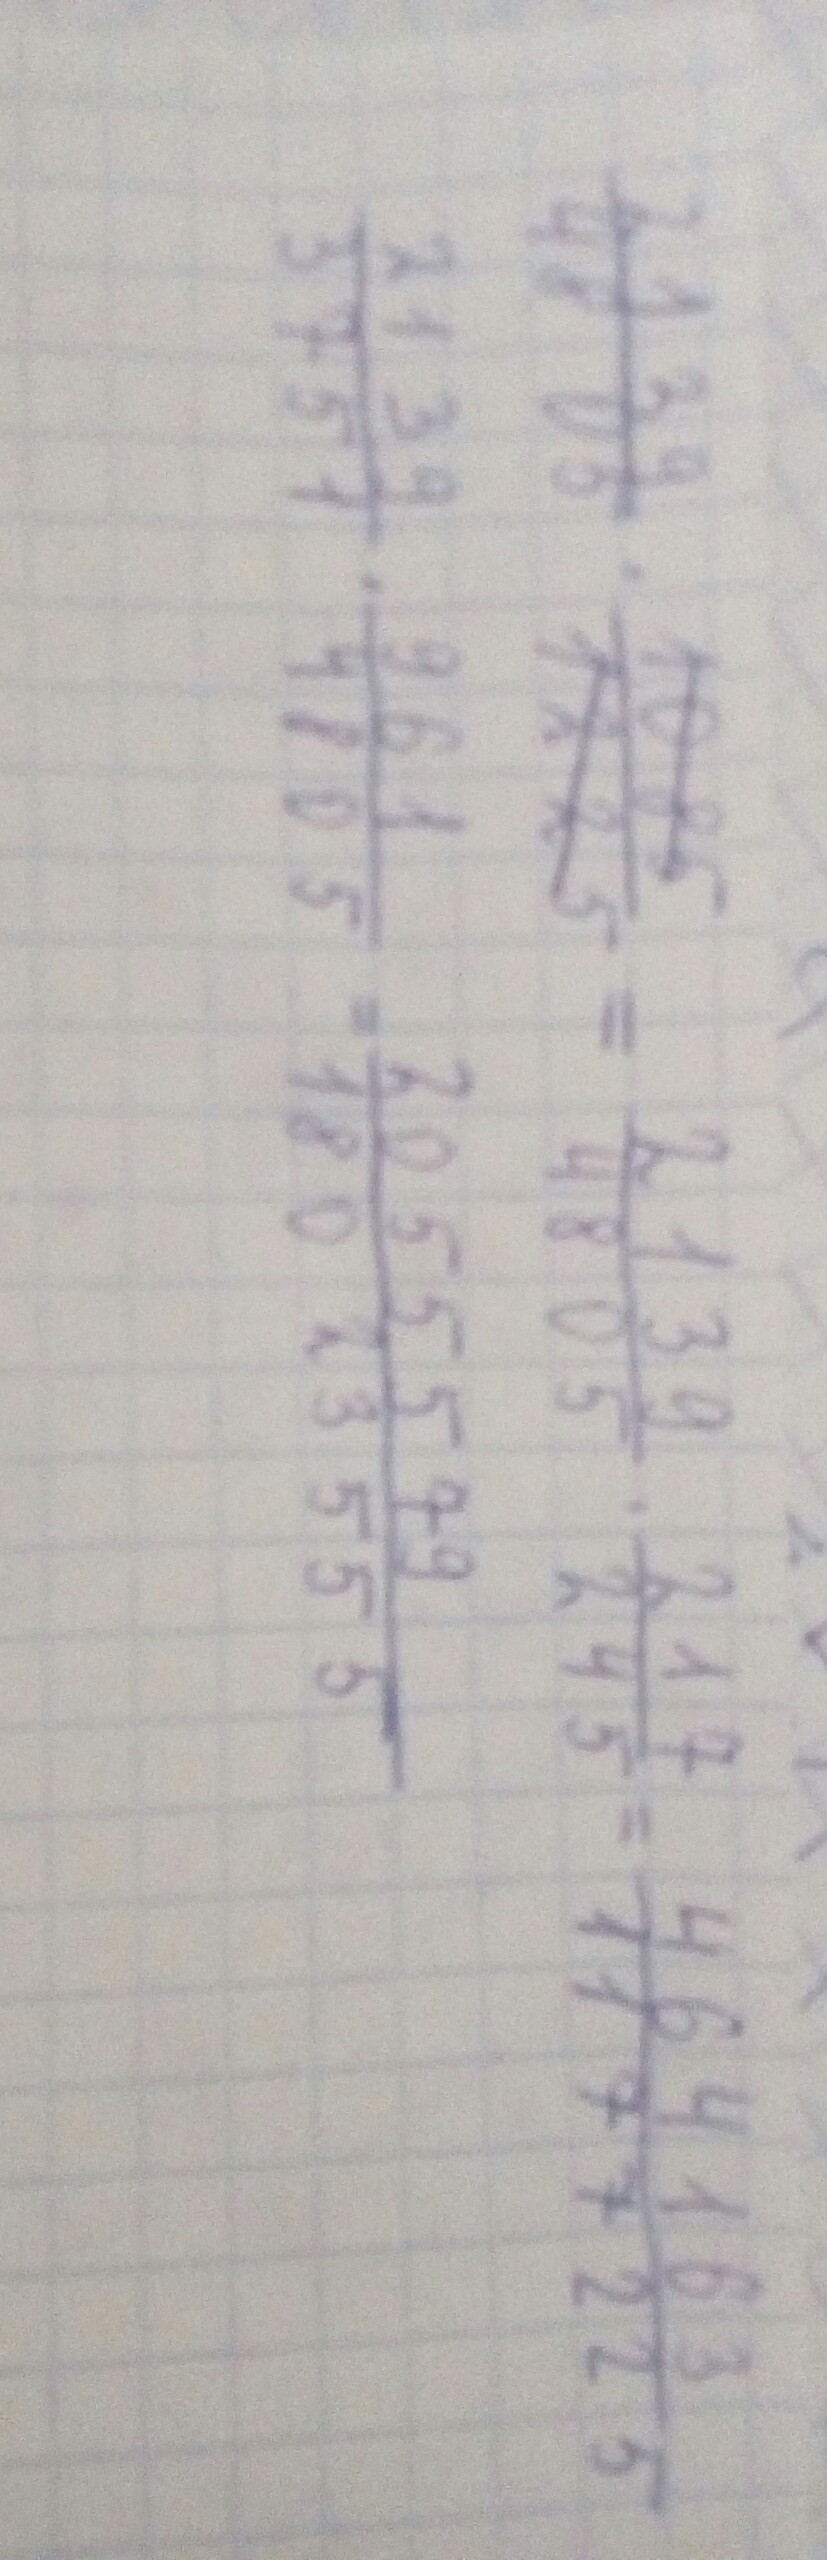 2139/4805 · 1085/1225 = 2139/4805 · 217/245 = 464163/1177225
2139/3751 · 961/4805 = 2055579/18023555